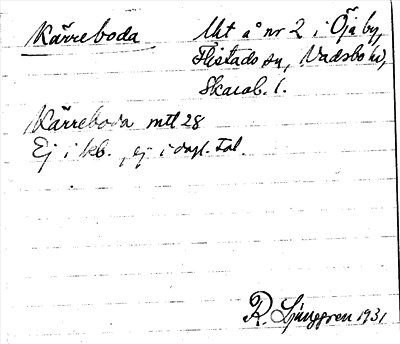 Kärreboda
Uht å nr 2 i Öja by,
Flistads sn, Vadsbo hd,
Skarab. l.
Kärreboda mtl 28
Ej i kb., ej i dagl. tal.
R. Ljunggren 1931